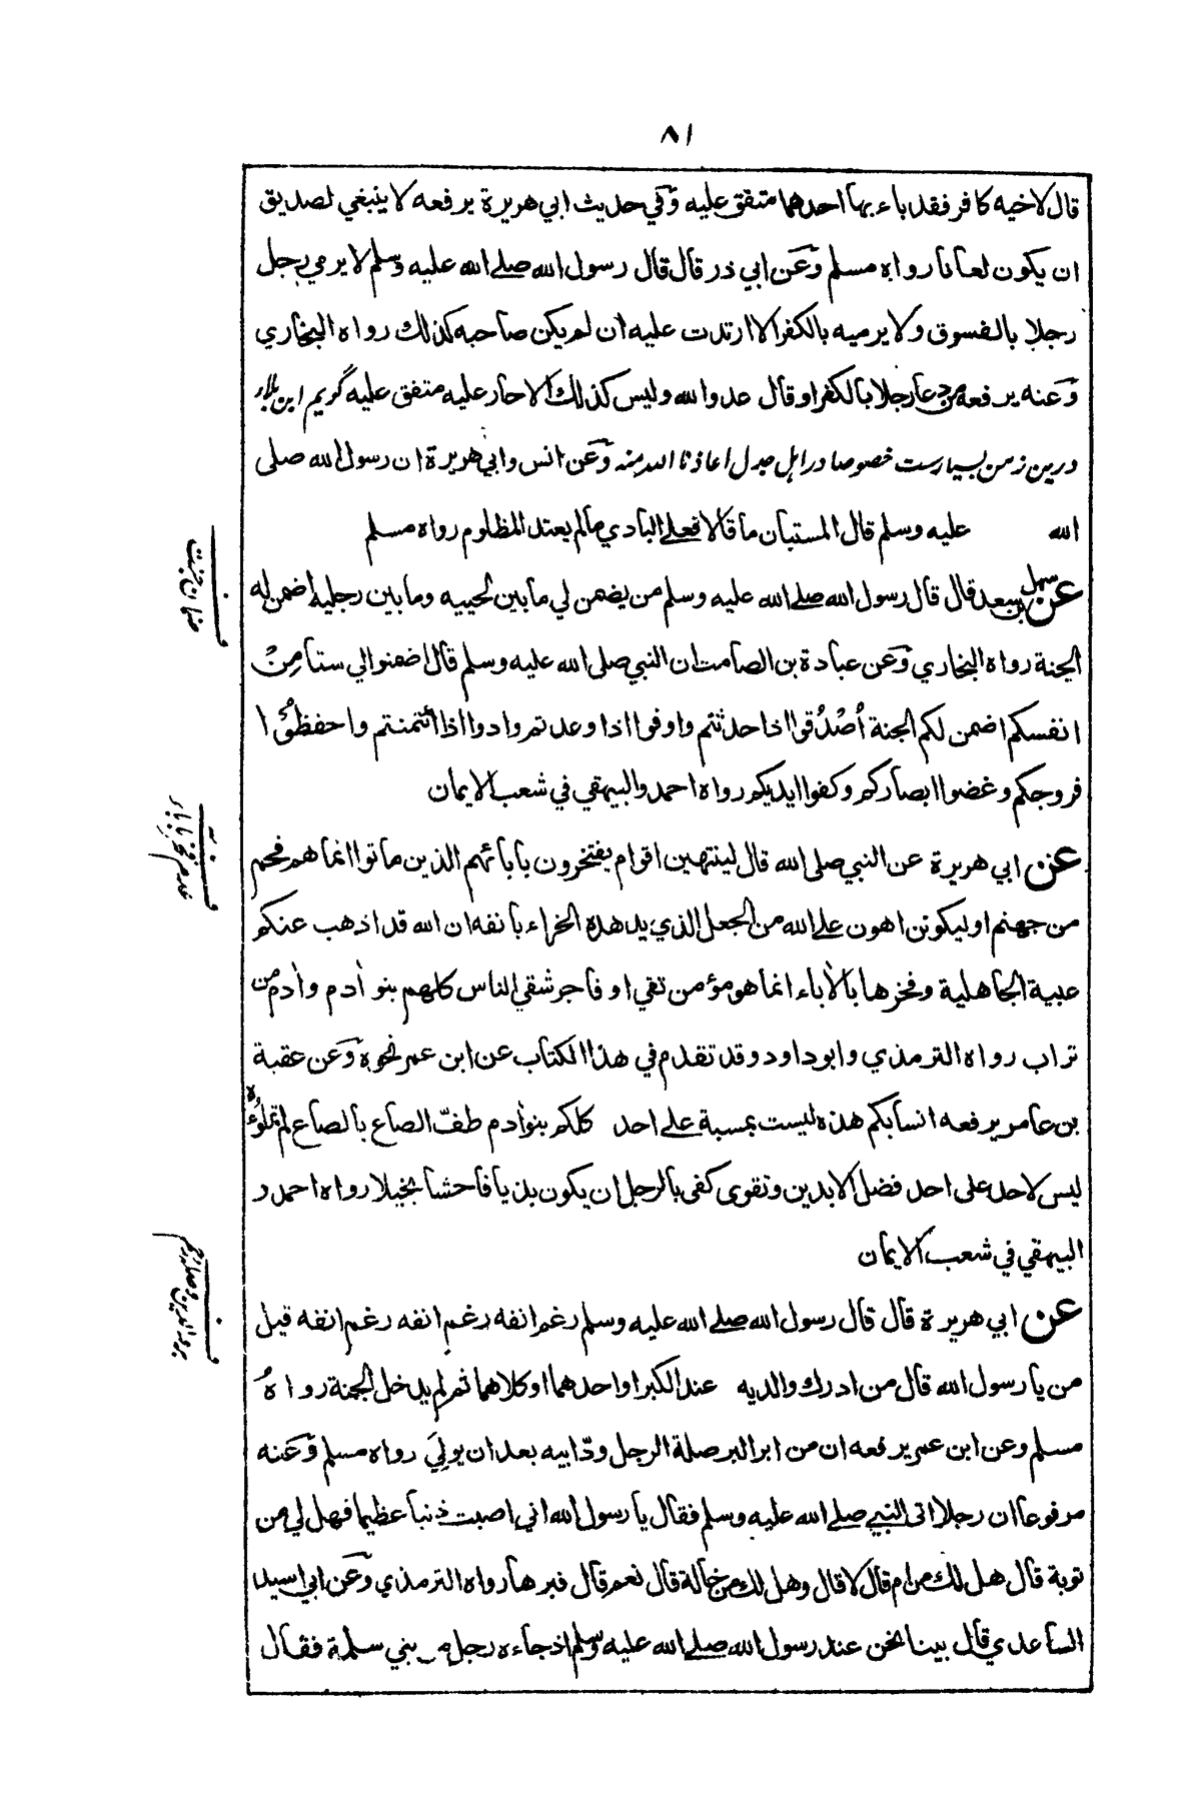 ٨١
قال لاخيه كافر فقد باء بها احدهما متفق عليه وفي حديث ابي هريرة يرفعه لا ينبغي لصديق
ان يكون لعانا رواه مسلم وعن ابي ذر قال قال رسول الله صلے الله عليه وسلم لا يرمي رجل
رجلا بالفسوق ولا يرميه بالكفر الا ارتدت عليه ان لم يكن صاحبه كذلك رواه البخاري
وعنه يرفعه من دعا رجلا بالكفر او قال عدو الله وليس كذلك الا حار عليه متفق عليه گويم اين بلاء
درين زمن بسيارست خصوصا در اہل جدل اعاذنا الله منه وعن انس وابي هريرة ان رسول الله صلى
الله عليه وسلم قال المستبان ما قالا فعلے البادي ما لم يعتد المظلوم رواه مسلم
عن سهل بن سعد قال قال رسول الله صلے الله عليه وسلم من يضمن لي ما بين لحييه وما بين رجليه اضمن له
الجنة رواه البخاري وعن عبادة بن الصامت ان النبي صلى الله عليه وسلم قال اضمنوا لي ستا مِنْ
انفسكم اضمن لكم الجنة اُصْدُقوا اذا حدثتم واوفوا اذا وعدتم وادوا اذا ائتمنتم واحفظُوْا
فروجكم وغضوا ابصاركم وكفوا ايديكم رواه احمد والبيهقي في شعب الايمان
عن ابي هريرة عن النبي صلى الله قال لينتهين اقوام يفتخرون بابائهم الذين ماتوا انما هم فحم
من جهنم او ليكونن اهون علے الله من الجعل الذي يدهده الخراء بانفه ان الله قد اذهب عنكم
عبية الجاهلية وفخرها بالاٰباء انما هو مؤمن تقي او فاجر شقي الناس كلهم بنو اٰدم واٰدم من
تراب رواه الترمذي وابو داود وقد تقدم في هذا الكتاب عن ابن عمر نحوه وعن عقبة
بن عامر يرفعه انسابكم هذه ليست بمسبة علے احد كلكم بنو اٰدم طفّ الصاع بالصاع لم تملؤه
ليس لاحد على احد فضل الا بدين وتقوى كفى بالرجل ان يكون بذيا فاحشا بخيلا رواه احمد و
البيهقي في شعب الايمان
عن ابي هريرة قال قال رسول الله صلے الله عليه وسلم رغم انفه رغم انفه رغم انفه قيل
من يا رسول الله قال من ادرك والديه عند الكبر او احدهما او كلاهما ثم لم يدخل الجنة رواهُ
مسلم وعن ابن عمر يرفعه ان من ابر البر صلة الرجل ودّ ابيه بعد ان يولي رواه مسلم وعنه
مرفوعا ان رجلا اتى النبي صلے الله عليه وسلم فقال يا رسول الله اني اصبت ذنبا عظيما فهل لي من
توبة قال هل لك من ام قال لا قال وهل لك من خالة قال نعم قال فبرها رواه الترمذي وعن ابي اسيد
الساعدي قال بينا نحن عند رسول الله صلے الله عليه وسلم اذ جاءه رجل من بني سلمة فقال